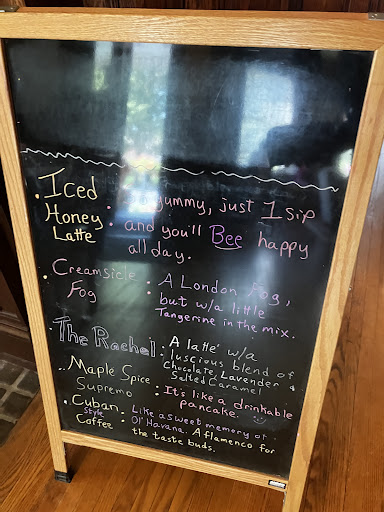 Iced Honey Latte : yummy, just 1 sip
and you'll Bee happy
all day.
Creamsicle Fog : A London Fog,
but w/a little
Tangerine in the mix.
The Rachel : A latté w/a
luscious blend of
Chocolate, Lavender &
Salted Caramel
Maple Spice Supremo : It's like a drinkable
pancake.
Cuban Style Coffee : Like a sweet memory of
Ol' Havana. A flamenco for
the taste buds.